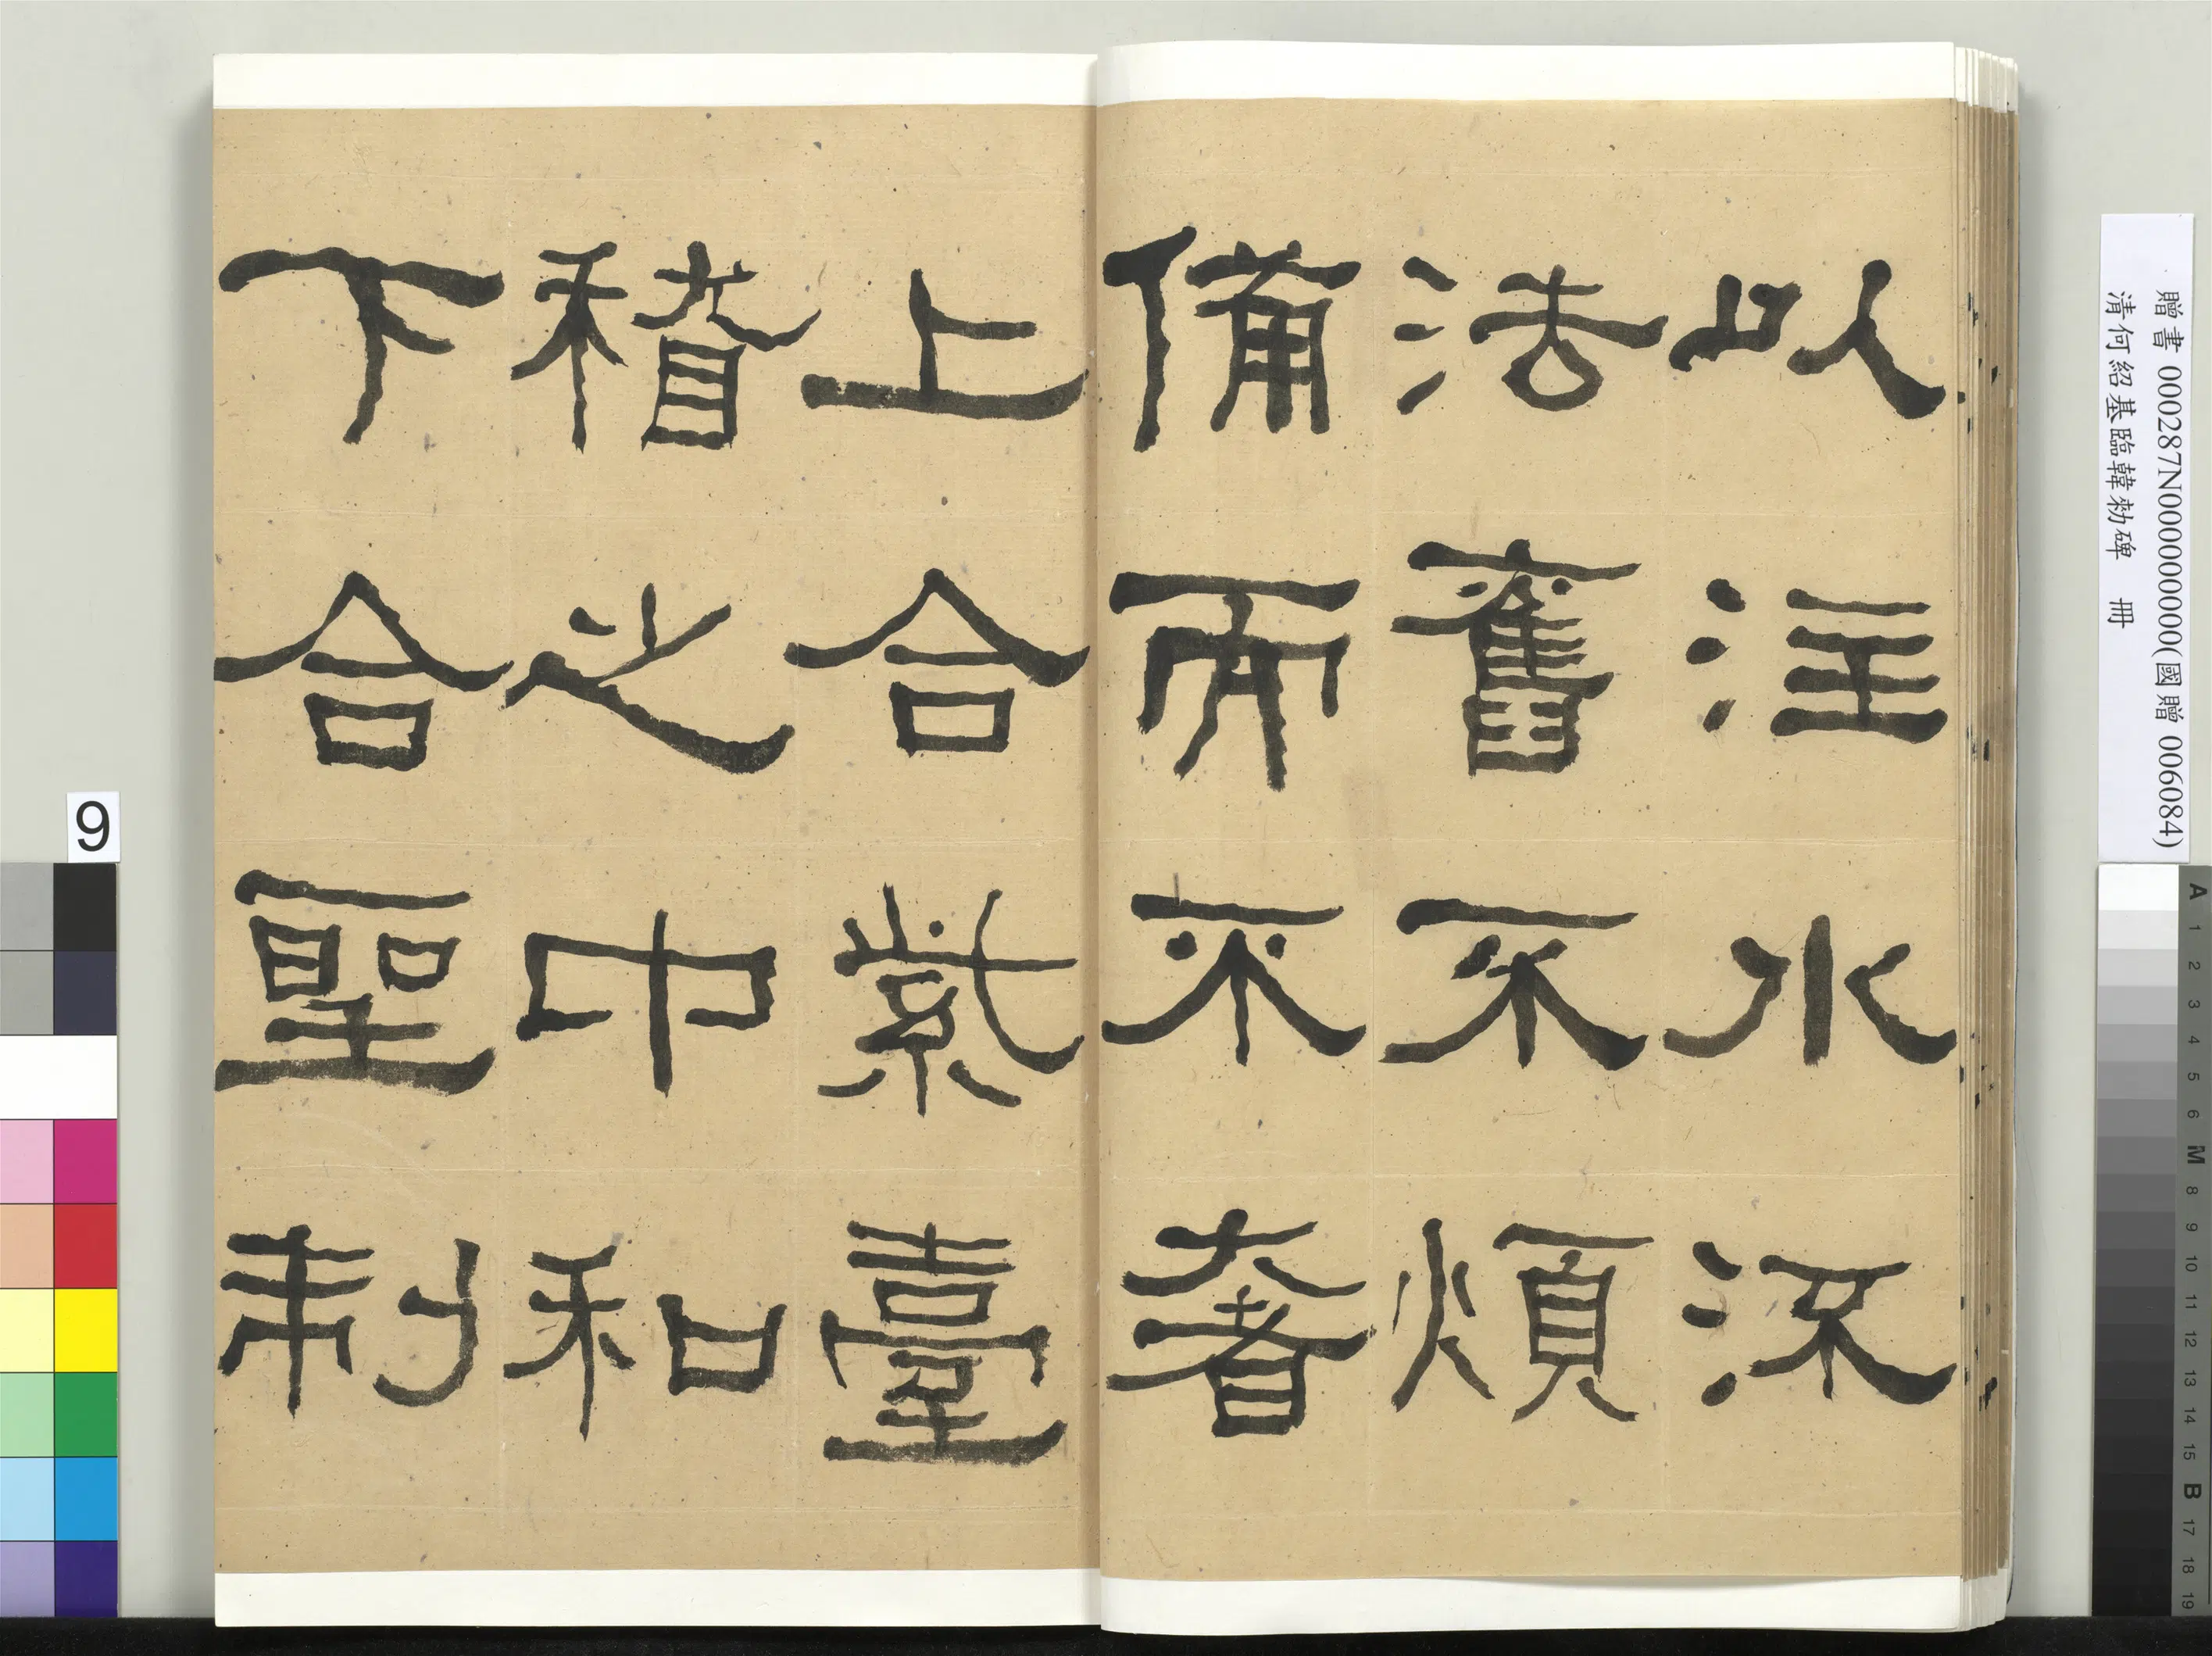 以注水流
法舊不煩
備而不奢
上合紫臺
稽之中和
下合聖制
贈書 000287N000000000(國贈 006084)
清何紹基臨韓勅碑 冊
9
A 1 2 3 4 5 6 M 8 9 10 11 12 13 14 15 B 17 18 19